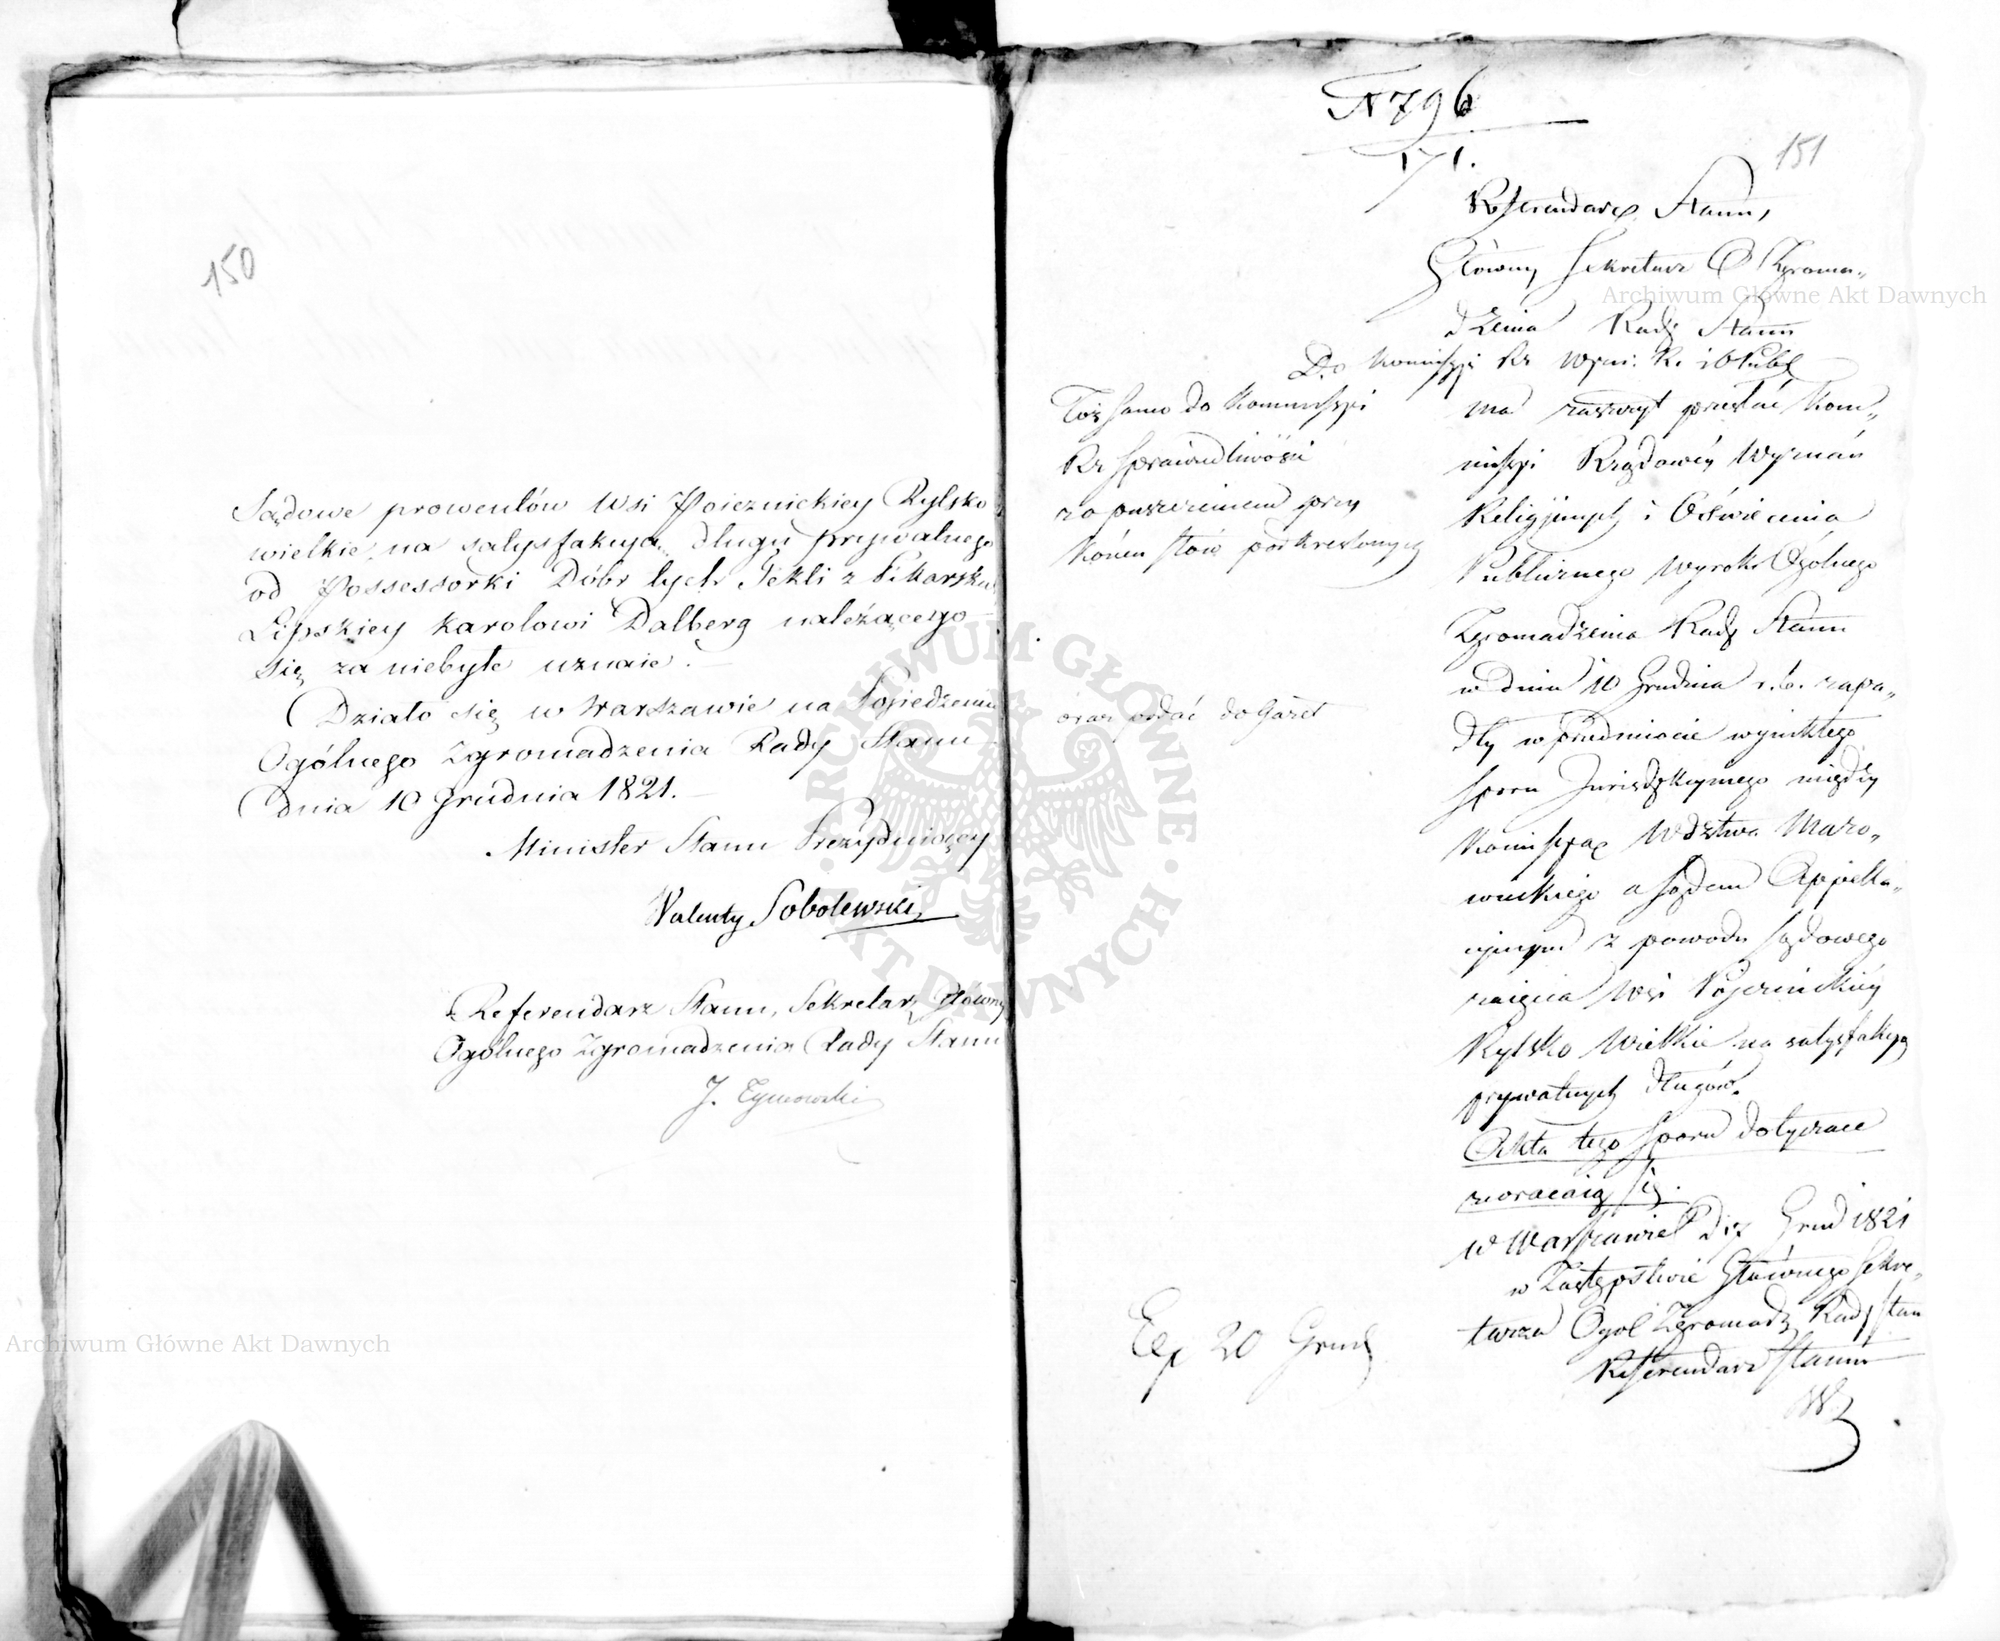 150
Sądowe prowentów Wsi Pojeznickiey Rylsko
wielkie, na satysfakcyą długu prywatnego
od Possessorki Dóbr tych Tekli z Pikarskich
Lipskiey Karolowi Dalberg należącego
się za niebyłe uznaie.
Działo się w Warszawie na Posiedzeniu
Ogólnego Zgromadzenia Rady Stanu
dnia 10 Grudnia 1821.
Minister Stanu Prezyduiący
Walenty Sobolewski
Referendarz Stanu, Sekretarz Główny
Ogólnego Zgromadzenia Rady Stanu
J. Tymowski
N 796
171.
151
Referendarz Stanu,
Główny Sekretarz O Zgroma„
dzenia Rady Stanu
Do Kommissyi Rz Wyzn: R. i O Publ
Toż samo do Kommissyi
Rz Sprawiedliwości
z opuszczeniem przy
Końcu słów podkreślonych
oraz podać do Gazet
ma zaszczyt przesłać Kom„
missyi Rządowéy Wyznań
Religijnych i Oświecenia
Publicznego Wyrok Ogólnego
Zgromadzenia Rady Stanu
w dniu 10 Grudnia r. b. zapa„
dły w przedmiocie wynikłego
sporu Jurisdykcyinego między
Kommissyą Wdztwa Mazo„
wieckiego a Sądem Appella„
cyinym z powodu sądowego
zaięcia Wsi Pojeznickiéy
Rylsko Wielkie na satysfakcyą
prywatnych długów.
Akta tego sporu dotyczące
zwracaią się.
w Warszawie d Grud 1821
w Zastępstwie Głównego Sekre„
tarza Ogól Zgromadz Rady Stanu
Referendarz Stanu
Exp 20 Grud
Archiwum Główne Akt Dawnych
Archiwum Główne Akt Dawnych
ARCHIWUM GŁÓWNE AKT DAWNYCH